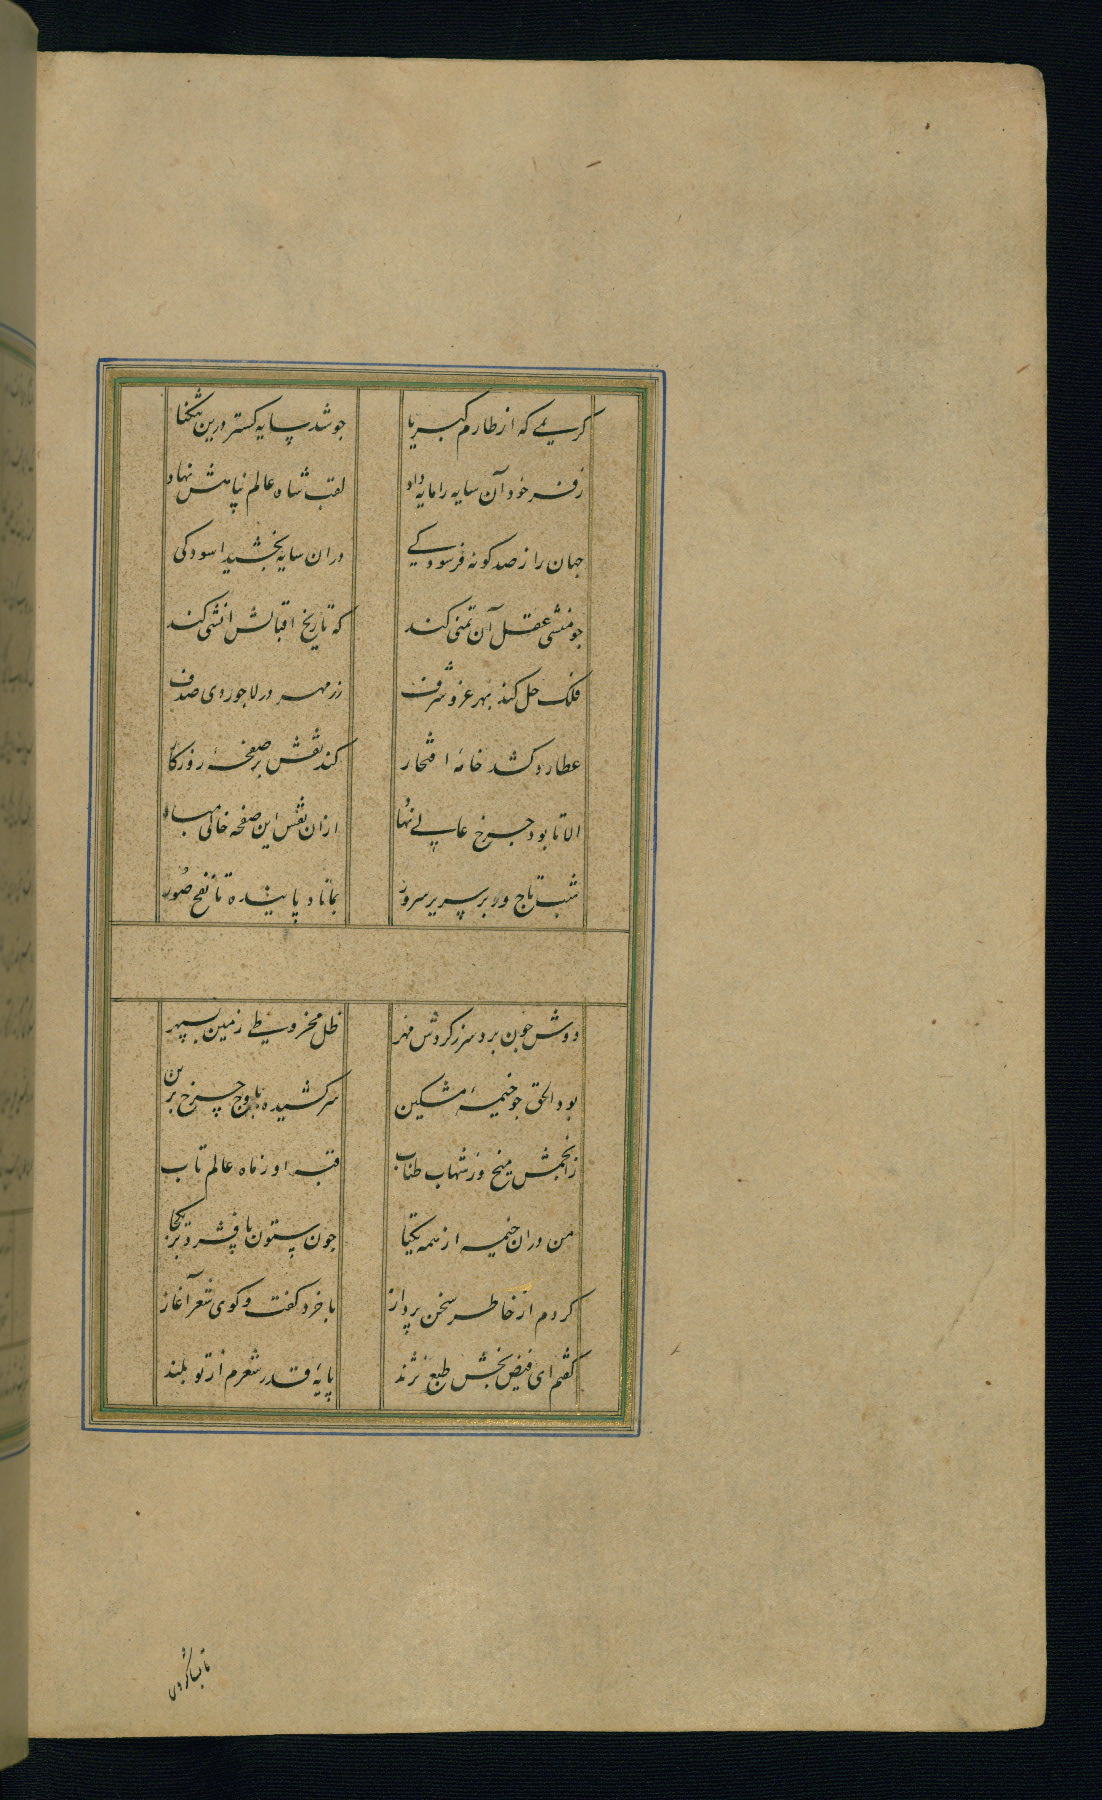 کریمے که از طارم کبریا جو شد سایه کستر درین تنکنا
ز فر خود آن سایه را مایه داد لقب شاه عالم پناهش نهاد
جهان را ز صد کونه فرسودکے در ان سایه بخشید اسودکی
جو منشی عقل آن تمنی کند که تاریخ اقبالش انشی کند
فلک حل کند بهر عز و شرف زر مهر در لاجوردی صدف
عطارد کشد خامهٔ افتخار کند نقش بر صفحهٔ روزکار
الا تا بود جرخ عالے نهاد ازان نقش این صفحه خالی مباد
شب تاج ور بر سریر سرور بماناد پاینده تا نفخ صور
دوش جون برد سر ز کردش مهر ظل مخروطے زمین بسپهر
بود الحق جو خیمهٔ مشکین سر کشیده باوج چرخ برین
ز انجمش میخ وز شهاب طناب قبه او ز ماه عالم تاب
من دران خیمه از همه یکتا جون ستون پا فشرده بر یکجا
کردم از خاطر سخن پرداز با خرد کفت و کوی شعر آغاز
کفتم ای فیض بخش طبع نژند پایهٔ قدر شعرم از تو بلند